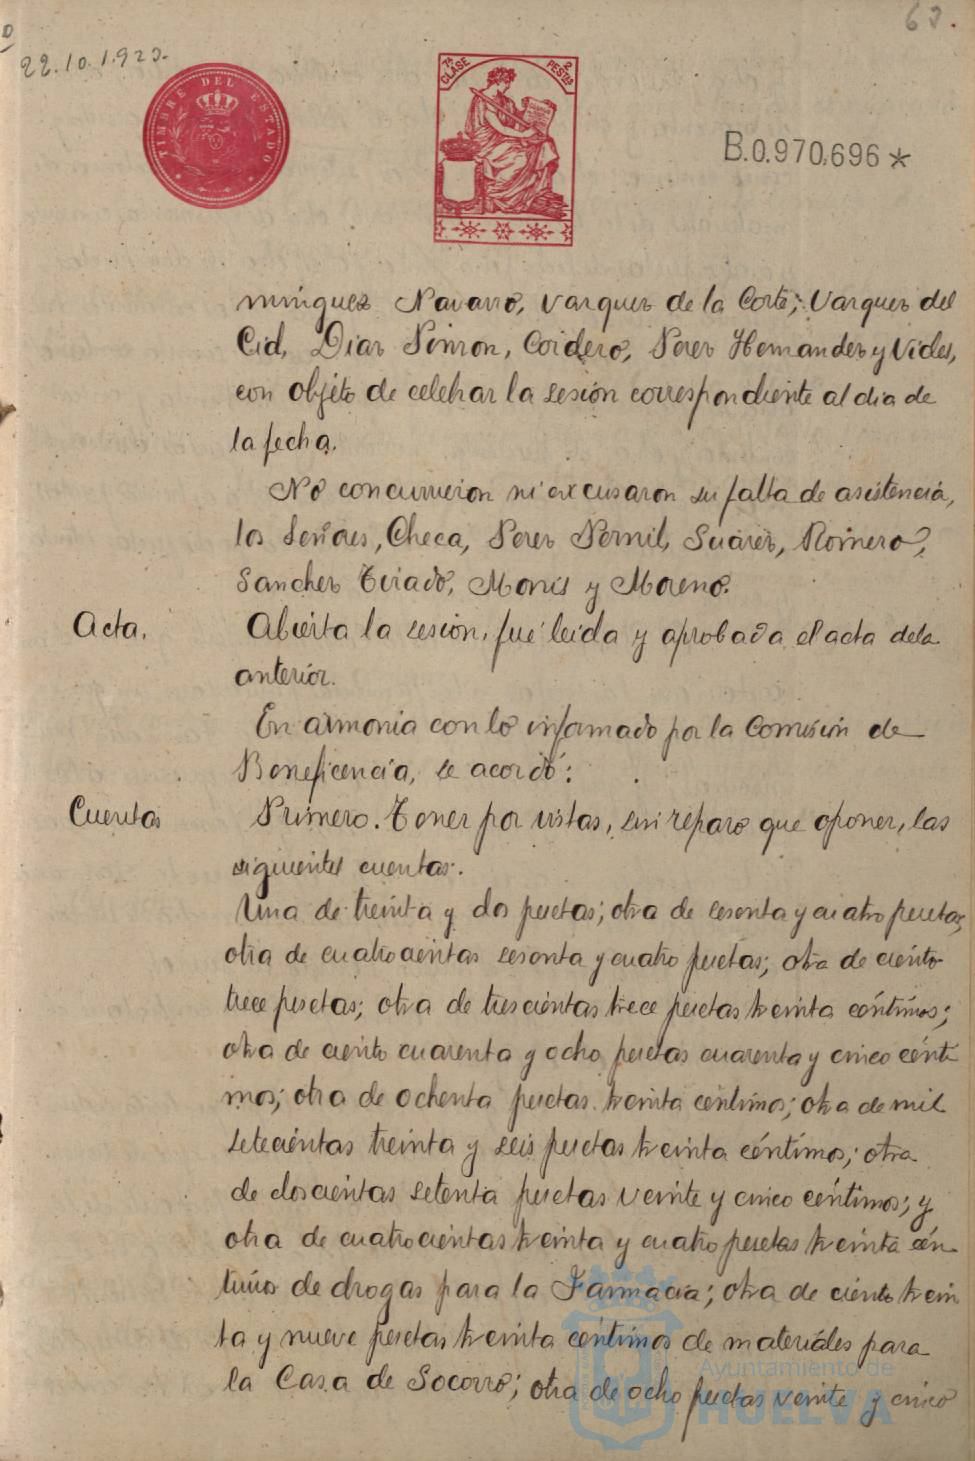 63.
22.10.1.923.
TIMBRE DEL ESTADO
7ª CLASE 2 PESTAS
B.0.970,696*
minguez Navarro, Varquez de la Corte; Varquez del
Cid, Diaz Pinzon, Cordero, Perez Hernandez y Vides,
con objeto de celebrar la sesion correspondiente al dia de
la fecha.
No concurrieron ni excusaron su falta de asistencia,
los Señores, Checa, Perez Pernil, Suárez, Romero,
Sanchez Tirado, Monis y Moreno.
Acta. Abierta la sesion, fué leida y aprobada el acta dela
anterior.
En armonia con lo informado por la Comisión de
Beneficencia, se acordó:
Cuentas Primero. Tener por vistas, sin reparo que oponer, las
siguientes cuentas:
Una de treinta y dos pesetas; otra de sesenta y cuatro pesetas;
otra de cuatrocientas sesenta y cuatro pesetas; otra de ciento
trece pesetas; otra de trescientas trece pesetas treinta céntimos;
otra de ciento cuarenta y ocho pesetas cuarenta y cinco cénti
mos; otra de ochenta pesetas treinta centimos; otra de mil
setecientas treinta y seis pesetas treinta céntimos; otra
de doscientas setenta pesetas veinte y cinco céntimos; y
otra de cuatrocientas treinta y cuatro pesetas treinta cén-
timos de drogas para la Farmacia; otra de ciento trein
ta y nueve pesetas treinta céntimos de materiales para
la Casa de Socorro; otra de ocho pesetas veinte y cinco
Ayuntamiento de
HUELVA